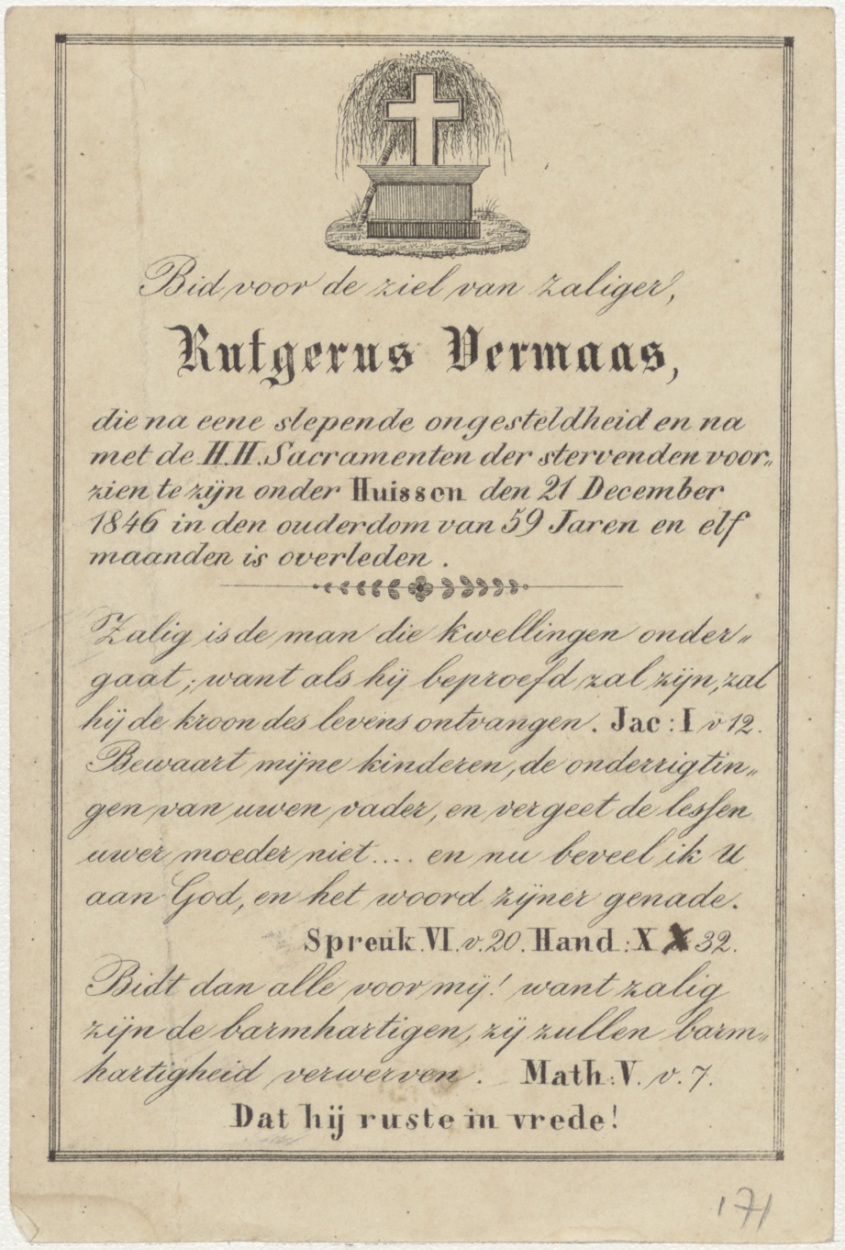 Bid voor de ziel van zaliger,
Rutgerus Vermaas,
die na eene slepende ongesteldheid en na
met de H.H. Sacramenten der stervenden voor„
zien te zijn onder Huissen den 21 December
1846 in den ouderdom van 59 Jaren en elf
maanden is overleden.
Zalig is de man die kwellingen onder„
gaat; want als hij beproefd zal zijn, zal
hij de kroon des levens ontvangen. Jac: I v 12.
Bewaart mijne kinderen, de onderrigtin„
gen van uwen vader, en vergeet de lessen
uwer moeder niet.... en nu beveel ik U
aan God, en het woord zijner genade.
Spreuk. VI. v. 20. Hand: X X 32.
Bidt dan alle voor mij! want zalig
zijn de barmhartigen, zij zullen barm„
hartigheid verwerven. Math: V. v. 7.
Dat hij ruste in vrede!
171